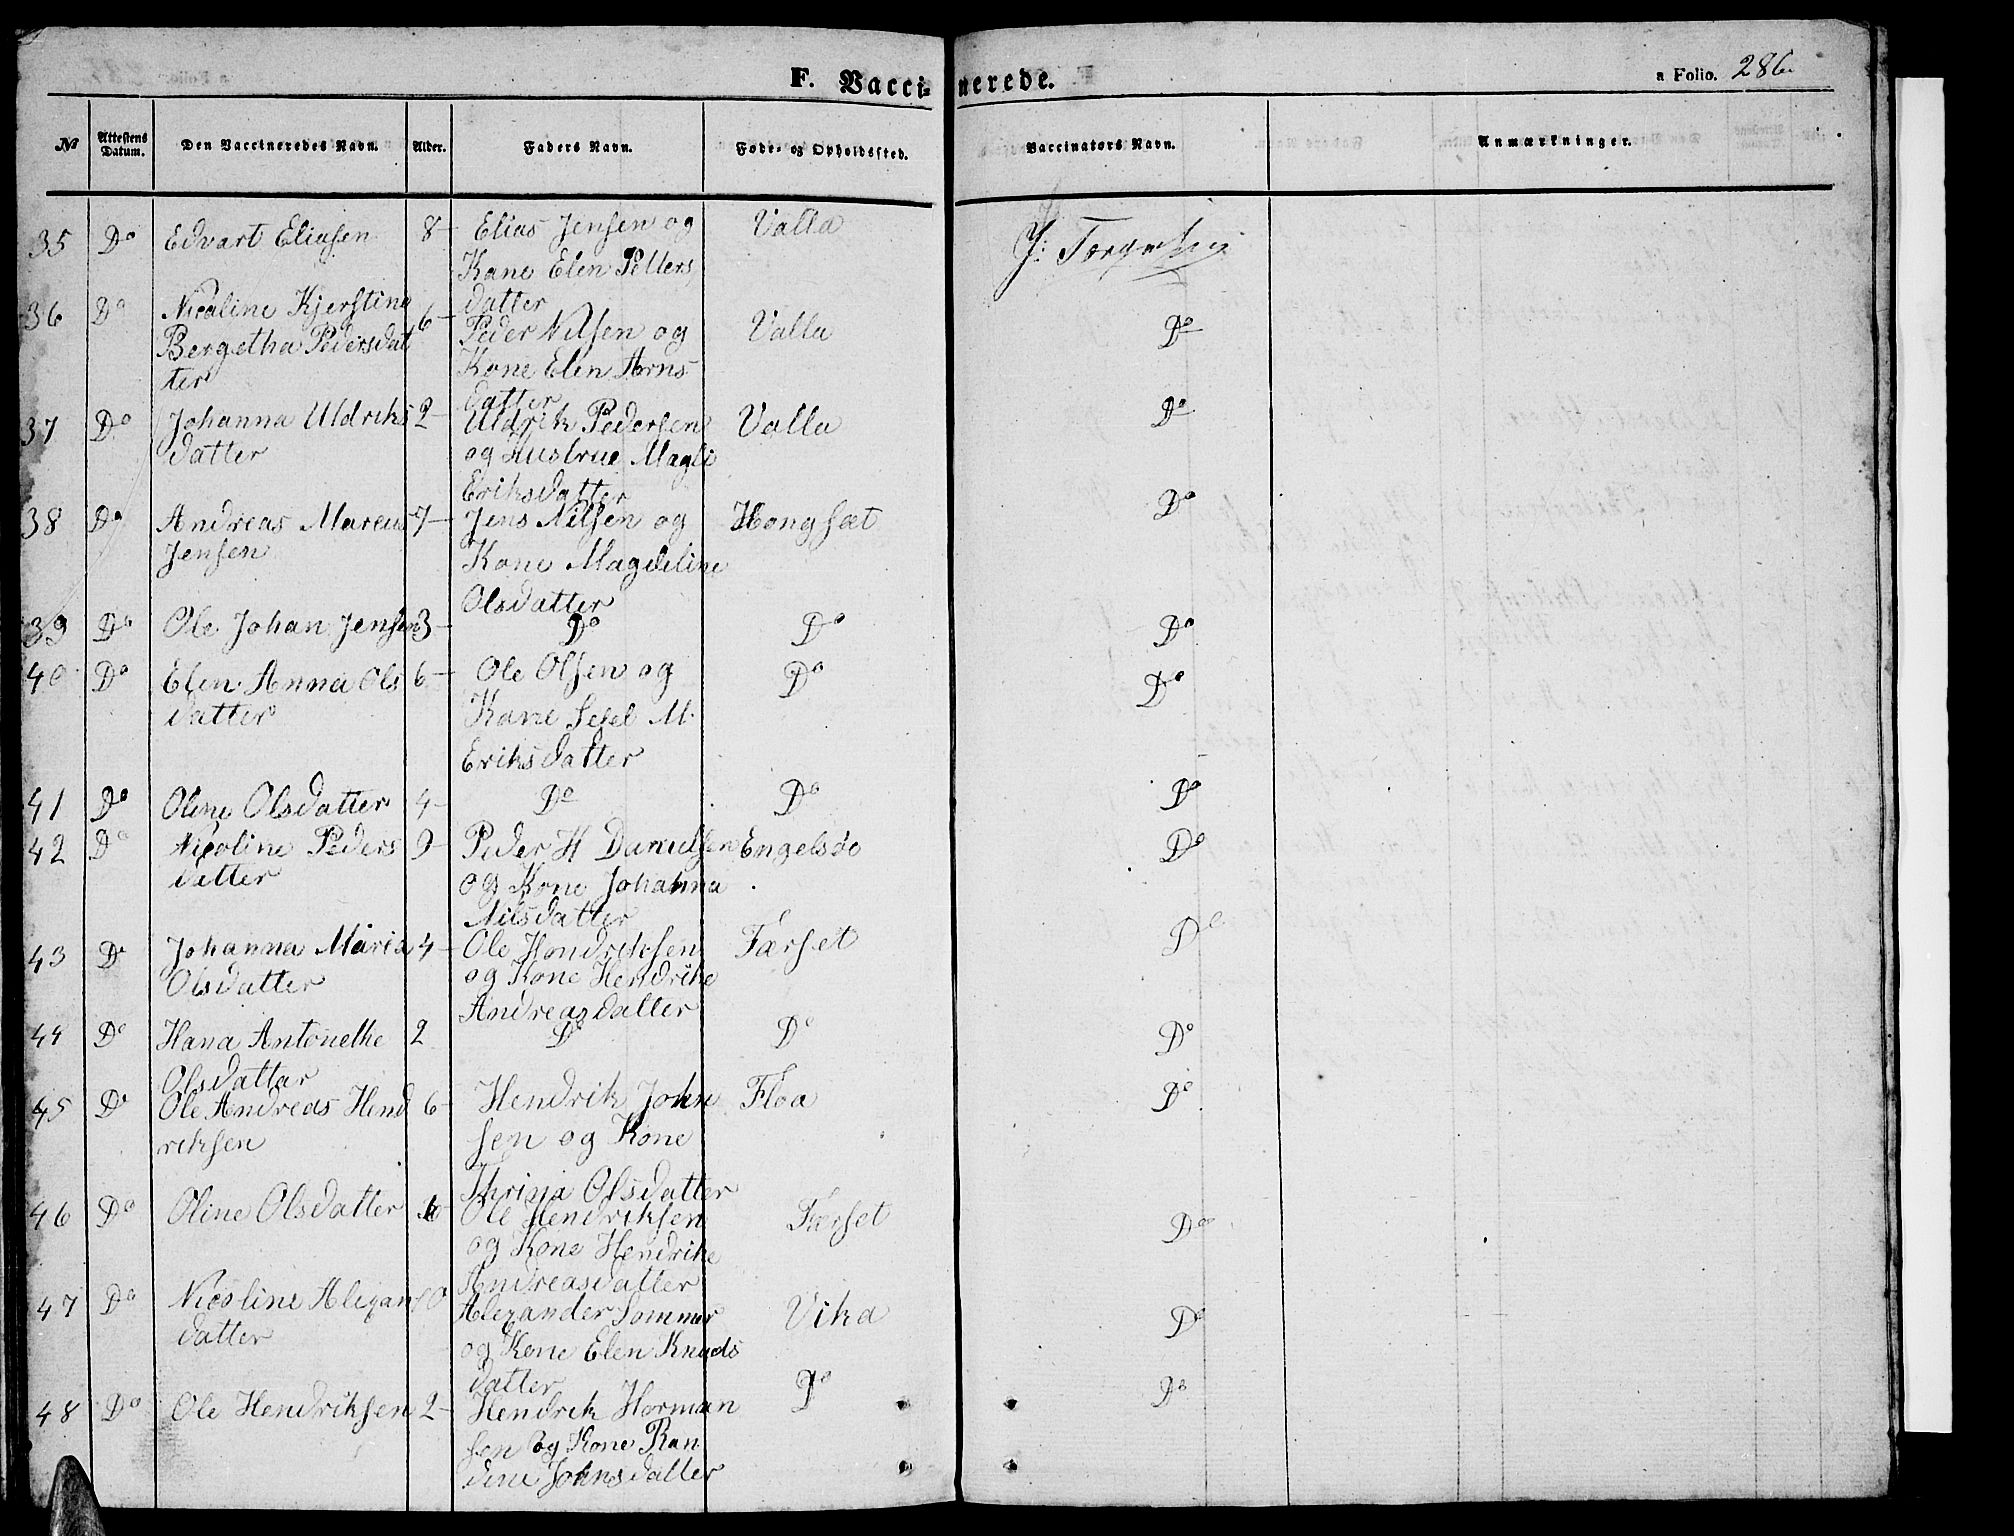 F. Vaccinerede.
a Folio. 286.
No Attestens Datum. Den Vaccineredes Navn. Alder. Faders Navn. Føde- og Opholdssted. Vaccinators Navn. Anmærkninger.
35 Do Edvart Eliasen 8 Elias Jensen og Valla J:
Kone Elen Petters
datter
36 Do Nicoline Kjerstina 6 Peder Nilsen og Valla Do
Bergetha Pedersdat Kone Elen Arns
ter datter
37 Do Johanna Uldriks 2 Uldrik Pedersen Valla Do
datter og Hustrue Magli
Eriksdatter
38 Do Andreas Mareus 7 Jens Nilsen og Hongsæt Do
Jensen Kone Magdeline
Olsdatter
39 Do Ole Johan Jensen 3 Do Do Do
40 Do Elen Anna Ols 6 Ole Olsen og Do Do
datter Kone Sesel M.
Eriksdatter
41 Do Oline Olsdatter 4 Do Do Do
42 Do Nicoline Peders 9 Peder H Danielsen Engelsøe Do
datter og Kone Johanna
Nilsdatter
43 Do Johanna Maria 4 Ole Hendriksen Færset Do
Olsdatter og Kone Hendrike
Andreasdatter
44 Do Hana Antonethe 2 Do Do Do
Olsdatter
45 Do Ole Andreas Hend 6 Hendrik John Floa Do
riksen sen og Kone
Thrina Olsdatter
46 Do Oline Olsdatter 10 Ole Hendriksen Færset Do
og Kone Hendrike
Andreasdatter
47 Do Nicoline Alexan 10 Alexander Sommer Vika Do
datter og Kone Elen Knuds
datter
48 Do Ole Hendriksen 2 Hendrik Horman Do Do
sen og Kone Ran
dine Johnsdatter